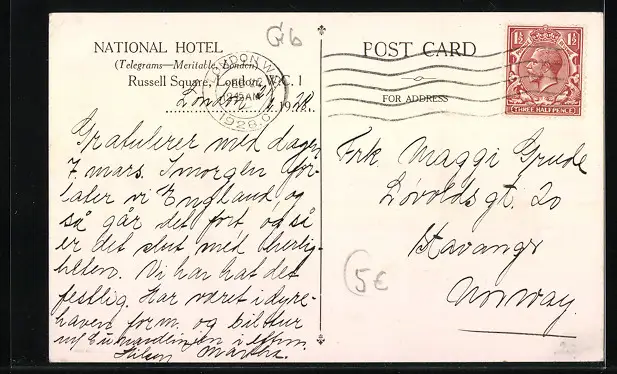 G6
NATIONAL HOTEL
(Telegrams—Meritable, London)
Russell Square, London, W.C. 1
London 1928.
POST CARD
FOR ADDRESS
LONDON W.C.
9.45 AM
1928
THREE HALFPENCE
Gratulerer med dagen
7. mars. Imorgen for-
later vi England, og
så går det fort og så
er det slut med herlig-
heten. Vi har hat det
festlig. Har været i dyre-
haven form. og biltur
m/ i efterm.
Hilsen Martha.
Frk Maggi Grude
Løvoldsgt. 20
Stavanger
Norway.
5€